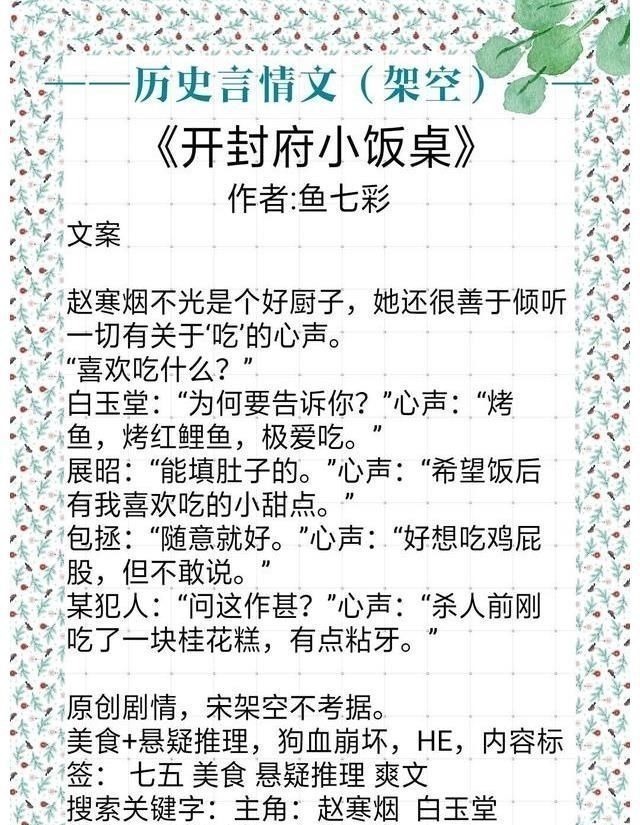 ——历史言情文（架空）——
《开封府小饭桌》
作者:鱼七彩
文案
赵寒烟不光是个好厨子，她还很善于倾听
一切有关于‘吃’的心声。
“喜欢吃什么？”
白玉堂：“为何要告诉你？”心声：“烤
鱼，烤红鲤鱼，极爱吃。”
展昭：“能填肚子的。”心声：“希望饭后
有我喜欢吃的小甜点。”
包拯：“随意就好。”心声：“好想吃鸡屁
股，但不敢说。”
某犯人：“问这作甚？”心声：“杀人前刚
吃了一块桂花糕，有点粘牙。”
原创剧情，宋架空不考据。
美食+悬疑推理，狗血崩坏，HE，内容标
签： 七五 美食 悬疑推理 爽文
搜索关键字：主角：赵寒烟 白玉堂